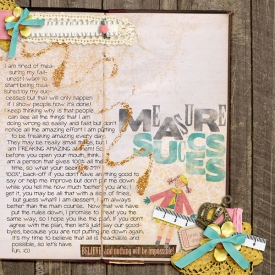 I am tired of mea-
suring my fail-
ures! I want to
start being mea-
sured by my suc-
cesses but that will only happen
if I show people how it's done! I
keep thinking why is that people
can see all the things that I am
doing wrong so easily and fast but don't
notice all the amazing effort I am putting
to be freaking amazing every day.
They may be really small steps, but I
am FREAKING AMAZING at them! So
before you open your mouth, think. I
am a person that gives 100% all the
time, so what your seeing is my
100%, back-off! If you don't have an thing good to
say or help me improve but don't put me down
while you tell me how much "better" you are. I
get it, you may be all that with a side of fries,
but guess what? I am dessert, I am always
better than the main course. Now that we have
put the rules down, I promise to treat you the
same way, so I hope you like the plan, if you don't
agree with the plan, then let's just say our good-
byes, because you are not putting me down again.
It's my time to believe that all is reachable and
possible, so let's have
fun.
MEASURE
SUCCESS
BELIEVE and nothing will be impossible!